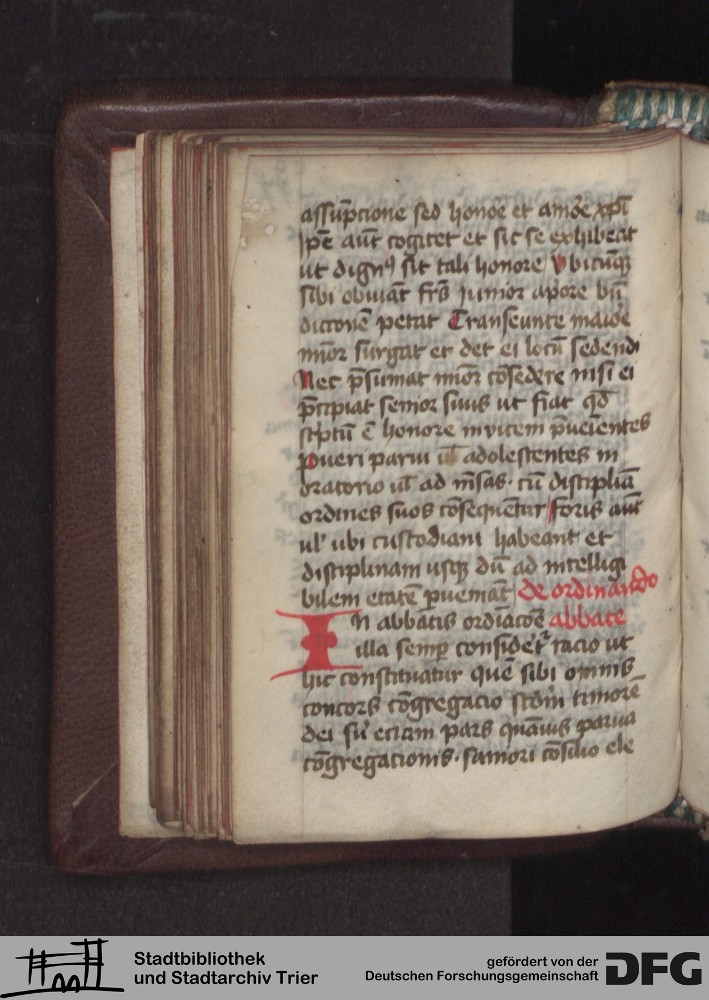 assūpcione sed honoē et amoē xpī
ipē aūt cogitet et sic se exhibeat
ut dignꝰ sit tali honore Vbicūqꝫ
sibi obuiāt frēs junior apore bn̄
diccionē petat Transeunte maioē
mīor surgat et det ei locū sedendi
Nec p̄sumat mīor cōsedere nisi ei
p̄cipiat senior suus ut fiat qd̄
scptū ē honore invicem p̄ueīentes
Pueri parui ul̄ adolescentes in
oratorio ul̄ ad mēsas · cū disciplīa
ordines suos cōsequēntur foris aūt
ul' ubi custodiam habeant et
disciplinam usqꝫ dū ad intelligi
bilem etatē ꝑueniāt de ordinando
In abbatis ordiacōe abbate
illa semꝑ considet̄r racio ut
hic constituatur quē sibi omnis
concors cōgregacio scdm timorē
dei siu' eciam pars quāuis parua
cōgregacionis · saniori cōsilio ele
Stadtbibliothek
und Stadtarchiv Trier
gefördert von der
Deutschen Forschungsgemeinschaft
DFG